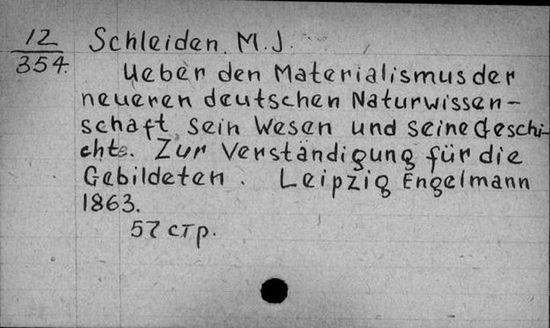 12
354.
Schleiden. M. J.
Ueber den Materialismus der
neueren deutschen Naturwissen-
schaft, sein Wesen und seine Geschi-
chte. Zur Verständigung für die
Gebildeten. Leipzig Engelmann
1863.
57 стр.